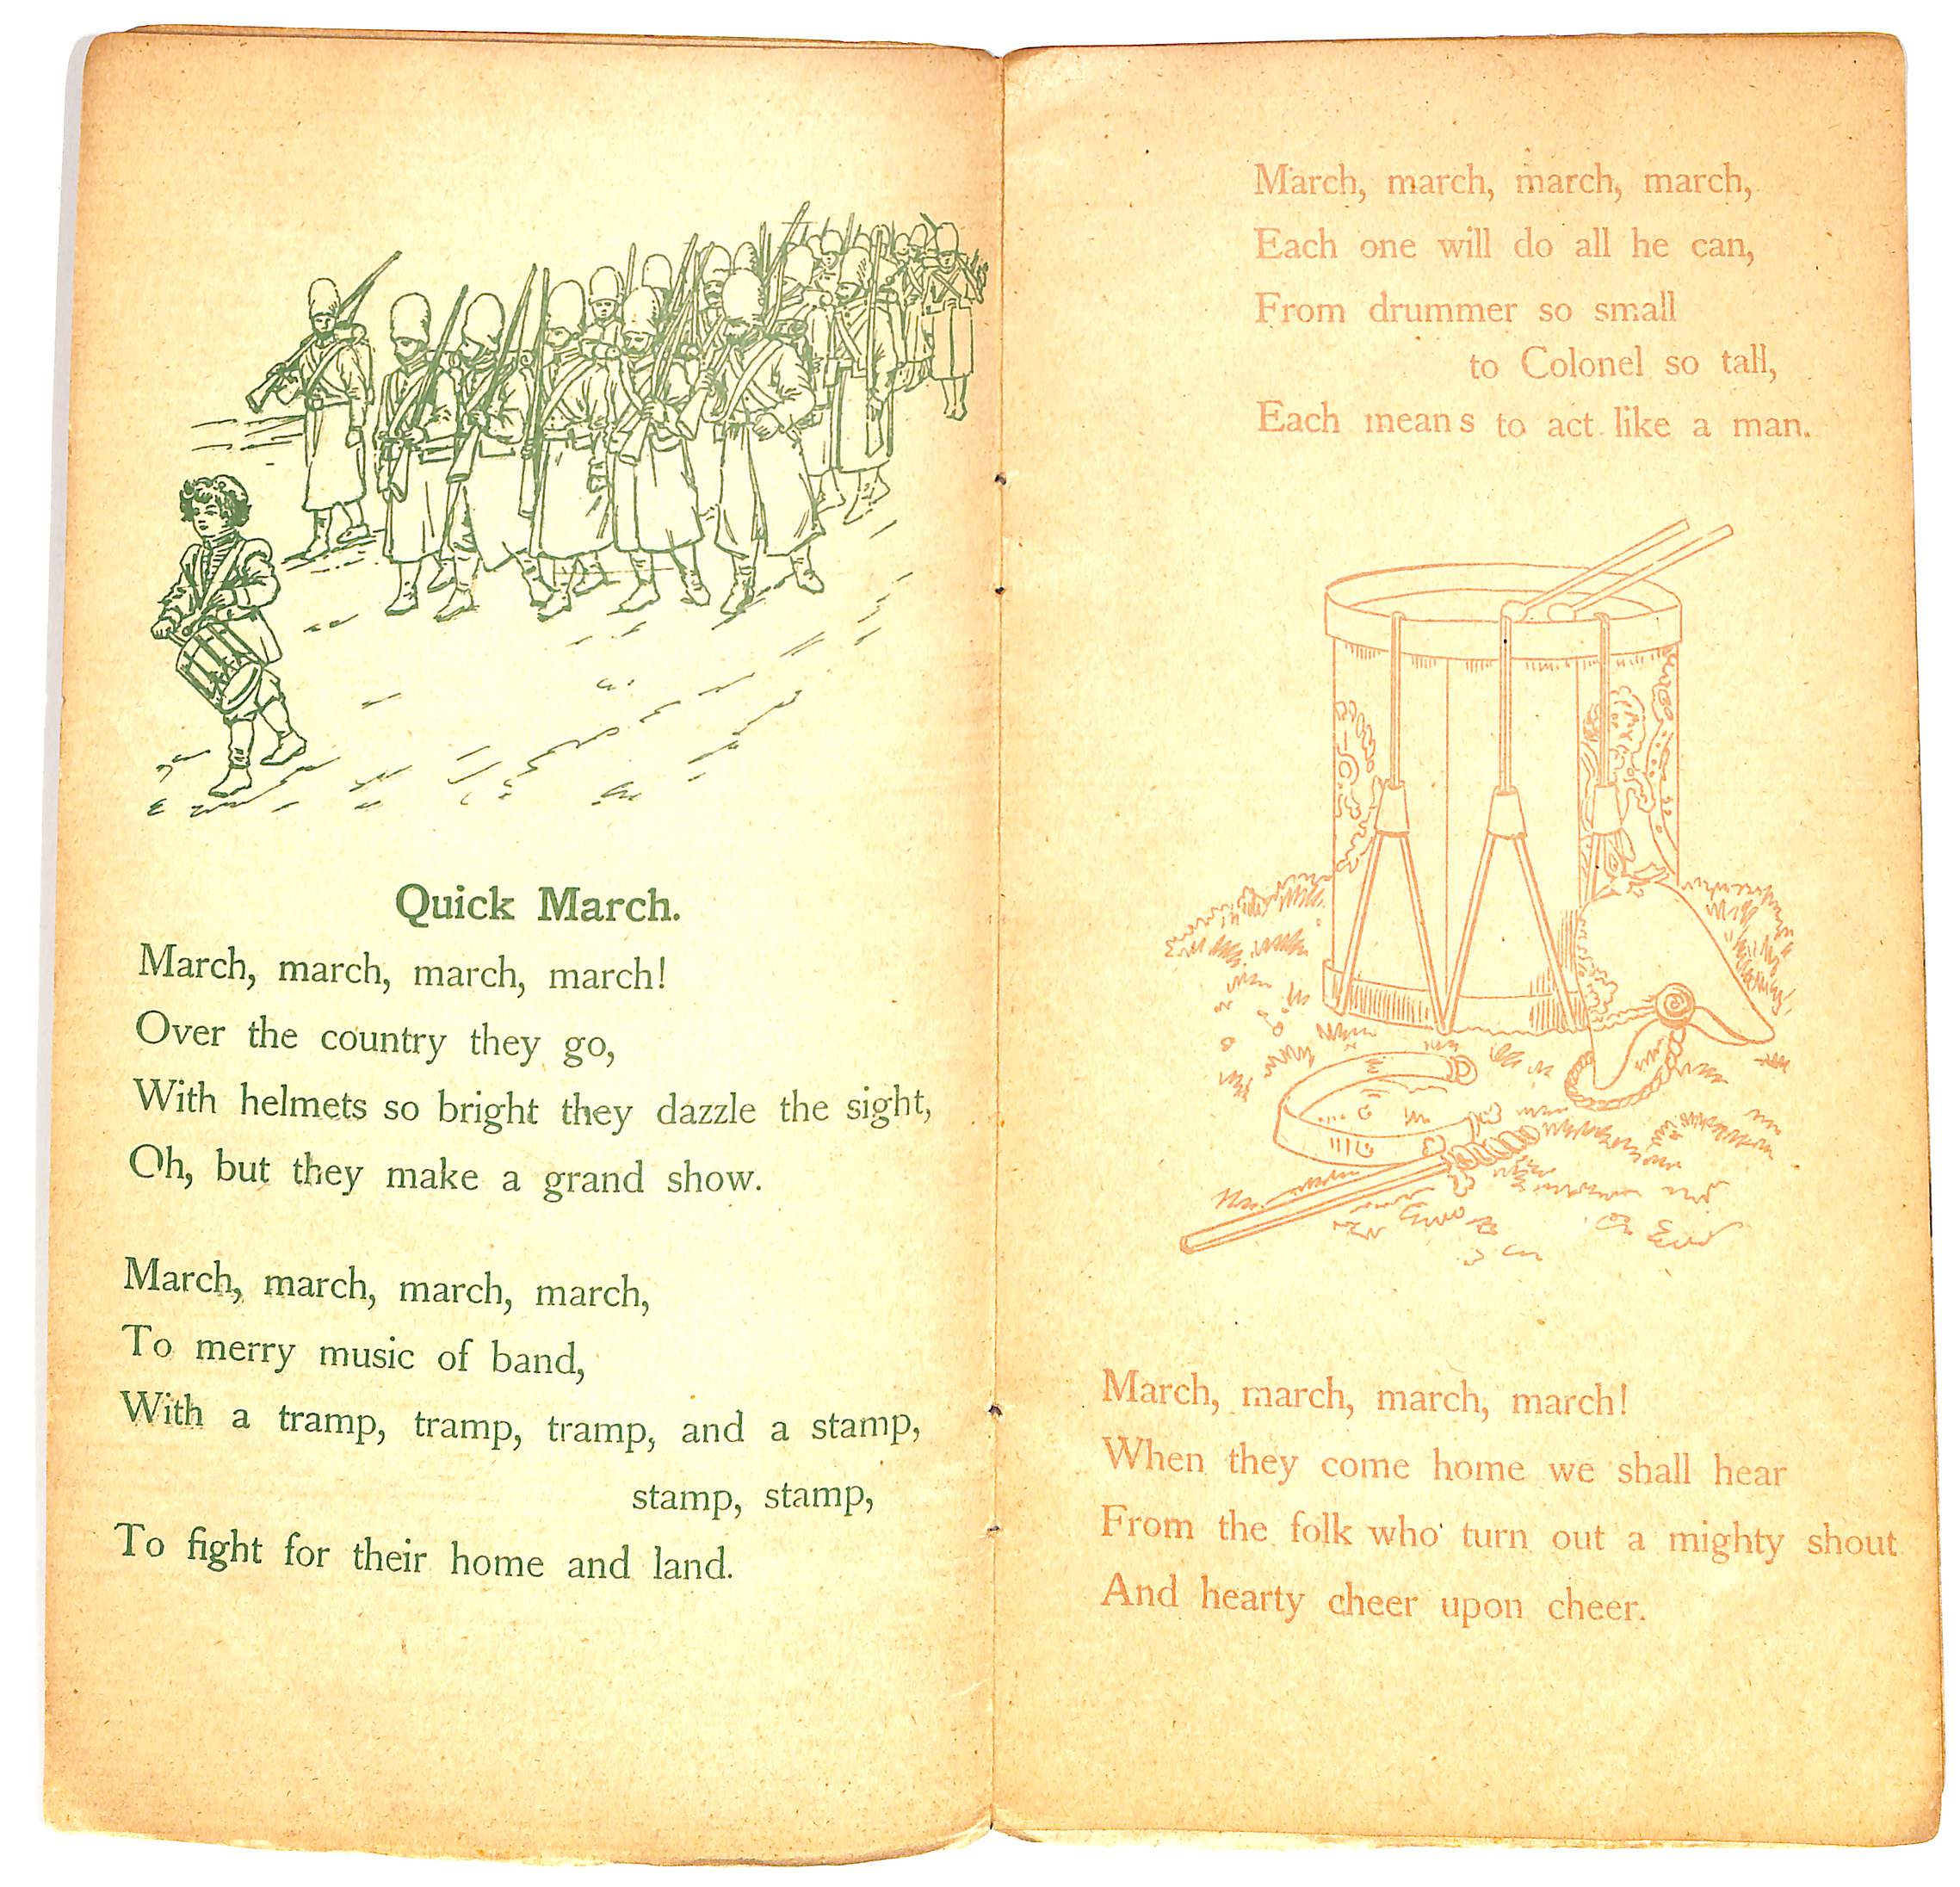 Quick March.
March, march, march, march!
Over the country they go,
With helmets so bright they dazzle the sight,
Oh, but they make a grand show.
March, march, march, march,
To merry music of band,
With a tramp, tramp, tramp, and a stamp,
stamp, stamp,
To fight for their home and land.
March, march, march, march,
Each one will do all he can,
From drummer so small
to Colonel so tall,
Each means to act like a man.
March, march, march, march!
When they come home we shall hear
From the folk who turn out a mighty shout
And hearty cheer upon cheer.